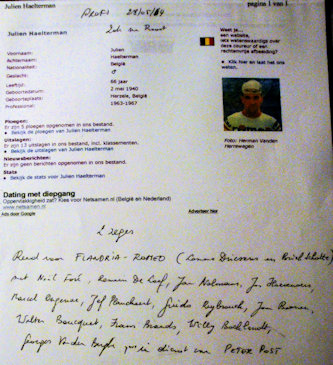 Julien Haelterman
pagina 1 van 1
PROFS 28/05/64
Julien Haelterman
Weet je...
een website,
iets wetenswaardigs over
deze coureur of een
rechtenvrije afbeelding?
• Klik hier en laat het ons
weten.
Voornaam: Julien
Achternaam: Haelterman
Nationaliteit: België
Geslacht: ♂
Leeftijd: 66 jaar
Geboortedatum: 2 mei 1940
Geboorteplaats: Herzele, België
Professional: 1963-1967
Ploegen:
Er zijn 5 ploegen opgenomen in ons bestand.
• Bekijk de ploegen van Julien Haelterman
Uitslagen:
Er zijn 13 uitslagen in ons bestand, incl. klassementen.
• Bekijk de uitslagen van Julien Haelterman
Nieuwsberichten:
Er zijn geen berichten opgenomen in ons bestand.
Stats
• Bekijk de stats voor Julien Haelterman
Foto: Herman Vanden
Herrewegen
Dating met diepgang
Oppervlakkigheid zat? Kies voor Netsamen.nl (België en Nederland)
www.netsamen.nl
Ads door Google
Adverteer hier
2 zeges
Reed voor FLANDRIA - ROMEO (Lomme Driessens en Briek Schotte)
met Noel Foré, Roman De Loof, Jan Nolmans,
Jef Planckaert, Guido Reybrouck,
Walter Boucquet, Frans Brands, Willy Bocklandt,
Georges Vanden Berghe in dienst van PETER POST